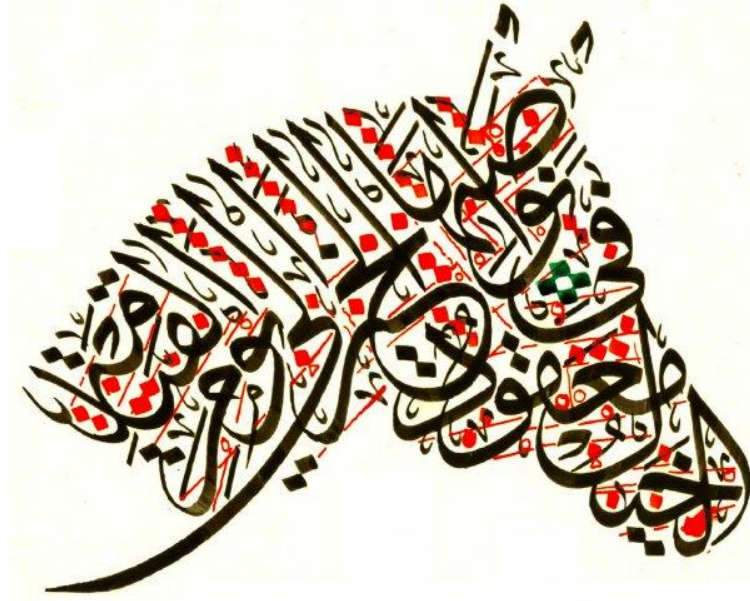 الخيل معقود في نواصيها الخير إلى يوم القيامة